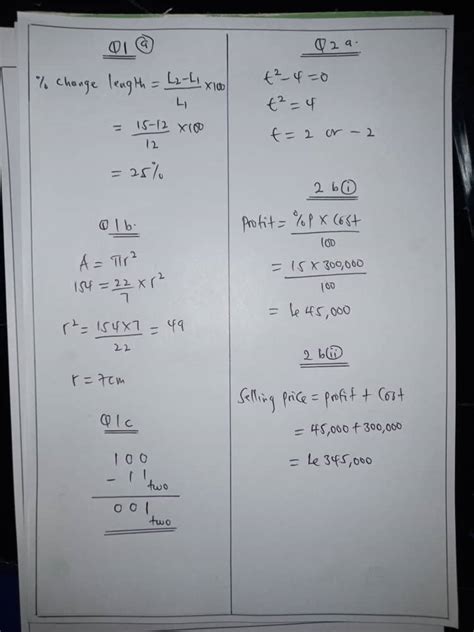 Q1 (a)
% change length = L₂-L₁/L₁ ×100
= 15-12/12 ×100
= 25%
Q1b.
A = πr²
154 = 22/7 × r²
r² = 154×7/22 = 49
r = 7cm
Q1c
100
- 11 two
001 two
Q2a.
t²-4=0
t² = 4
t = 2 or -2
2b(i)
Profit = %P × Cost/100
= 15 × 300,000/100
= Le 45,000
2b(ii)
Selling price = profit + Cost
= 45,000 + 300,000
= Le 345,000